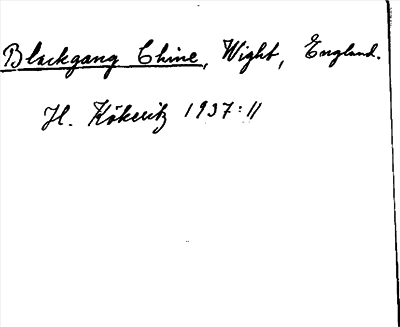 Blackgang Chine, Wight, England.
H. Kökeritz 1937: 11